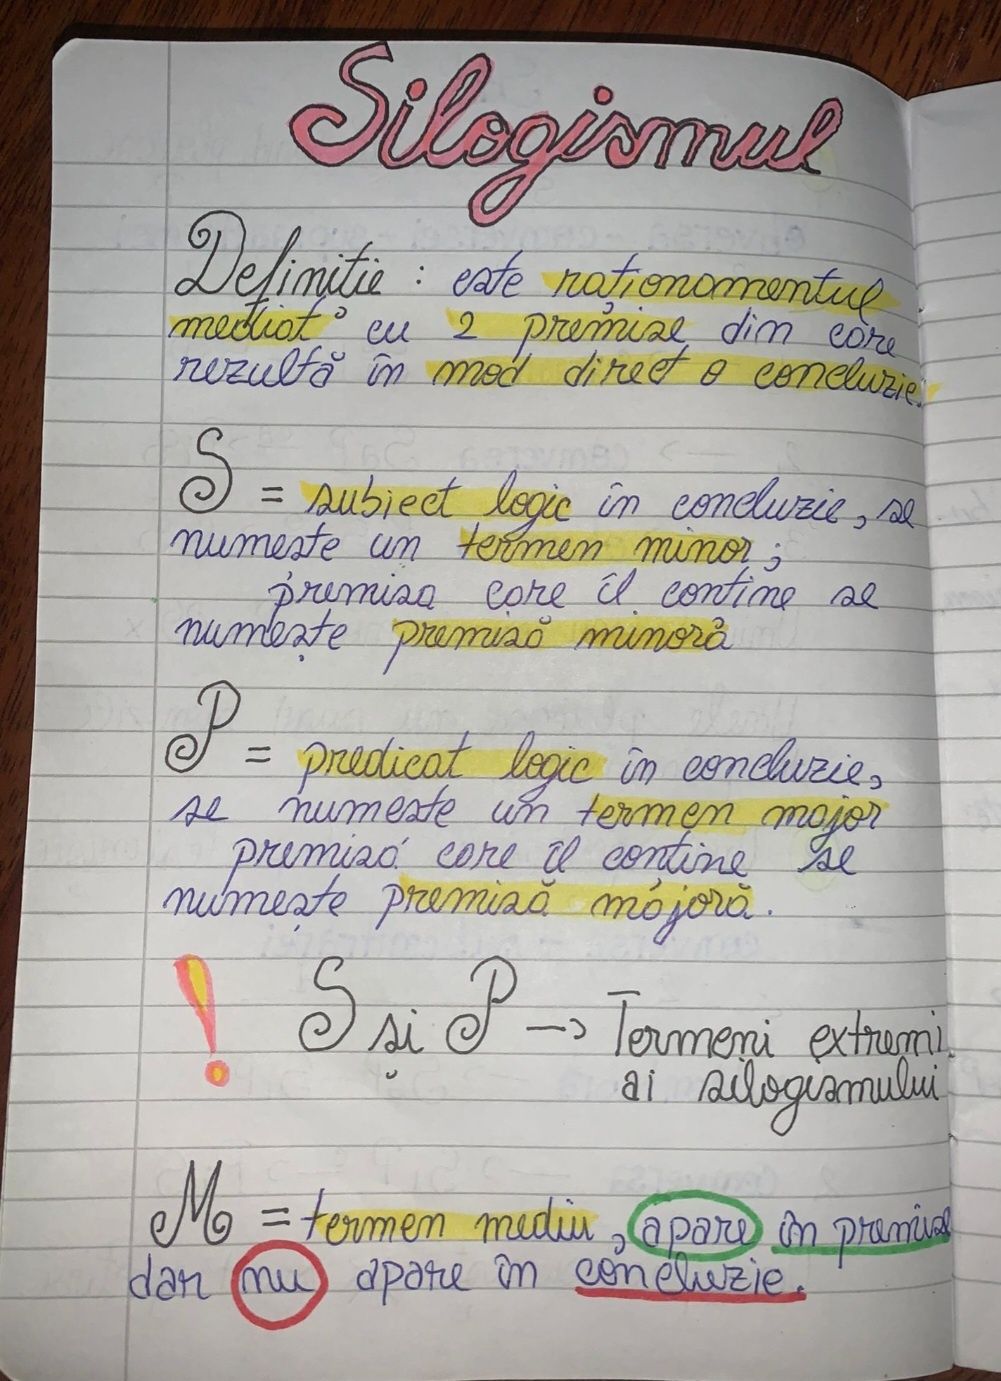 Silogismul
Definiție : este raționamentul
mediat cu 2 premise din care
rezultă în mod direct o concluzie.
S = subiect logic în concluzie, se
numește un termen minor ;
premisa care îl contine se
numește premisă minoră
P = predicat logic în concluzie,
se numeste un termen major
premisă care îl contine se
numește premisă majoră.
! S și P -> Termeni extremi
ai silogismului
M = termen mediu, apare în premise
dar nu apare în concluzie.